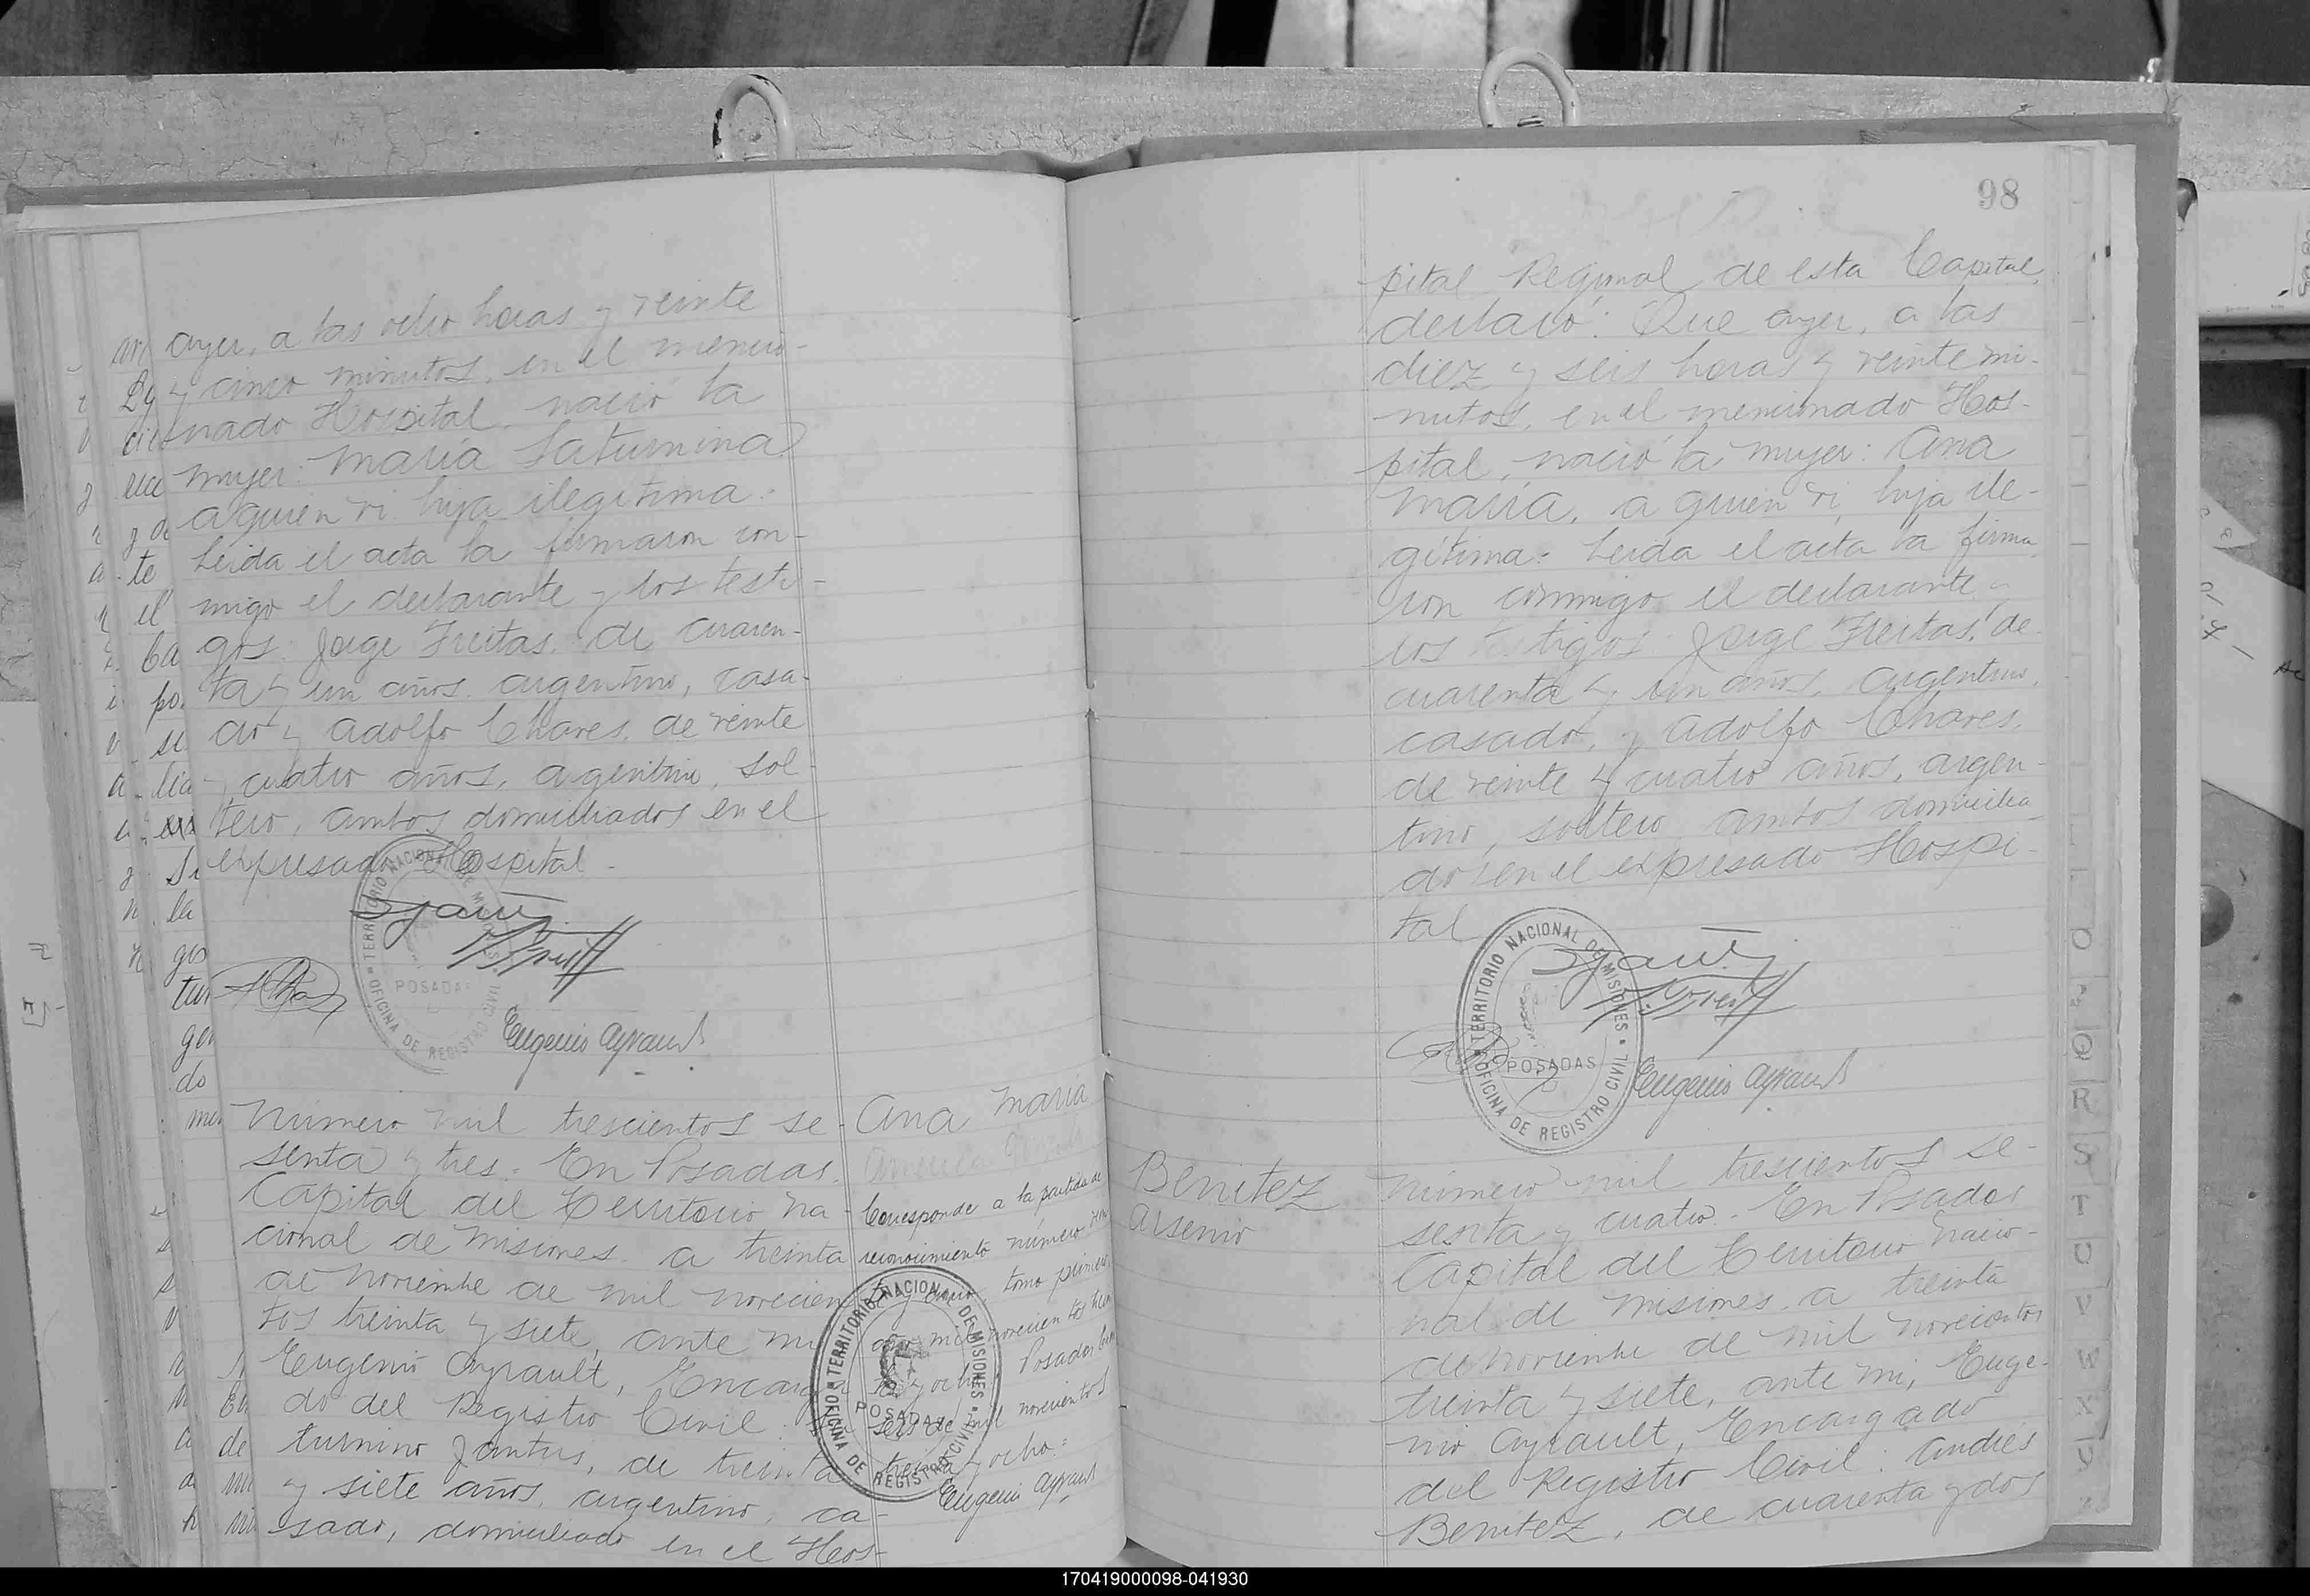 ayer, a las ocho horas y veinte
y cinco minutos, en el mencio-
nado Hospital, nació la
mujer: María Saturnina
a quien vi, hija ilegítima.
Leida el acta la firmaron con-
migo el declarante y los testi-
gos: Jorge Freitas, de cuaren-
ta y un años, argentino, casa-
do y Adolfo Chaves, de veinte
y cuatro años, argentino, sol-
tero, ambos domiciliados en el
expresado Hospital.
TERRITORIO NACIONAL DE MISIONES
POSADAS
OFICINA DE REGISTRO CIVIL
Eugenio Ayrault
Número mil trescientos se-
senta y tres. En Posadas,
Capital del Territorio Na-
cional de Misiones, a treinta
de noviembre de mil novecien-
tos treinta y siete, ante mi
Eugenio Ayrault, Encarga
do del Registro Civil: Sa
turnino Jantus, de treinta
y siete años, argentino, ca-
sado, domiciliado en el Hos-
Ana María
Corresponde a la partida de
reconocimiento número
y cinco, tomo primero
año mil novecientos trein
ta y ocho. Posadas
seis de mil novecientos
treinta y ocho=
Eugenio Ayrault
TERRITORIO NACIONAL DE MISIONES
POSADAS
OFICINA DE REGISTRO CIVIL
98
pital Regional de esta Capital,
declaró: Que ayer, a las
diez y seis horas y veinte mi-
nutos, en el mencionado Hos-
pital, nació la mujer: Ana
María, a quien vi, hija ile-
gítima. Leida el acta la firma
ron conmigo el declarante y
los testigos: Jorge Freitas, de
cuarenta y un años, argentino,
casado, y Adolfo Chaves,
de veinte y cuatro años, argen-
tino, soltero, ambos domicilia
dos en el expresado Hospi-
tal
TERRITORIO NACIONAL DE MISIONES
POSADAS
OFICINA DE REGISTRO CIVIL
Eugenio Ayrault
Benitez
Arsenio
Número mil trescientos se-
senta y cuatro. En Posadas
Capital del Territorio Nacio-
nal de Misiones, a treinta
de noviembre de mil novecientos
treinta y siete, ante mi, Euge-
nio Ayrault, Encargado
del Registro Civil: Andrés
Benitez, de cuarenta y dos
Q
R
S
T
U
V
W
X
170419000098-041930